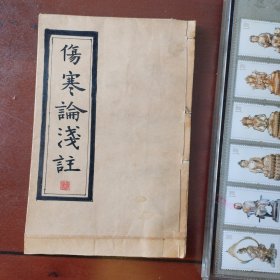 傷寒論淺註